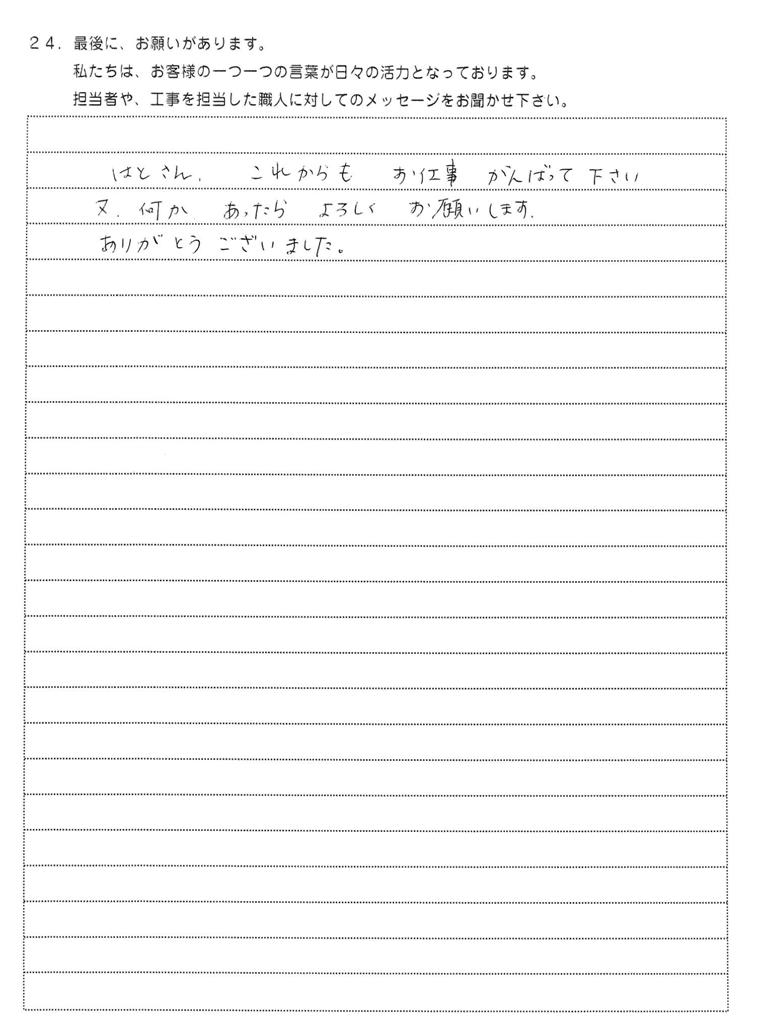 24．最後に、お願いがあります。
私たちは、お客様の一つ一つの言葉が日々の活力となっております。
担当者や、工事を担当した職人に対してのメッセージをお聞かせ下さい。
はとさん、 これからも お仕事 がんばって 下さい
又、何か あったら よろしく お願いします。
ありがとう ございました。